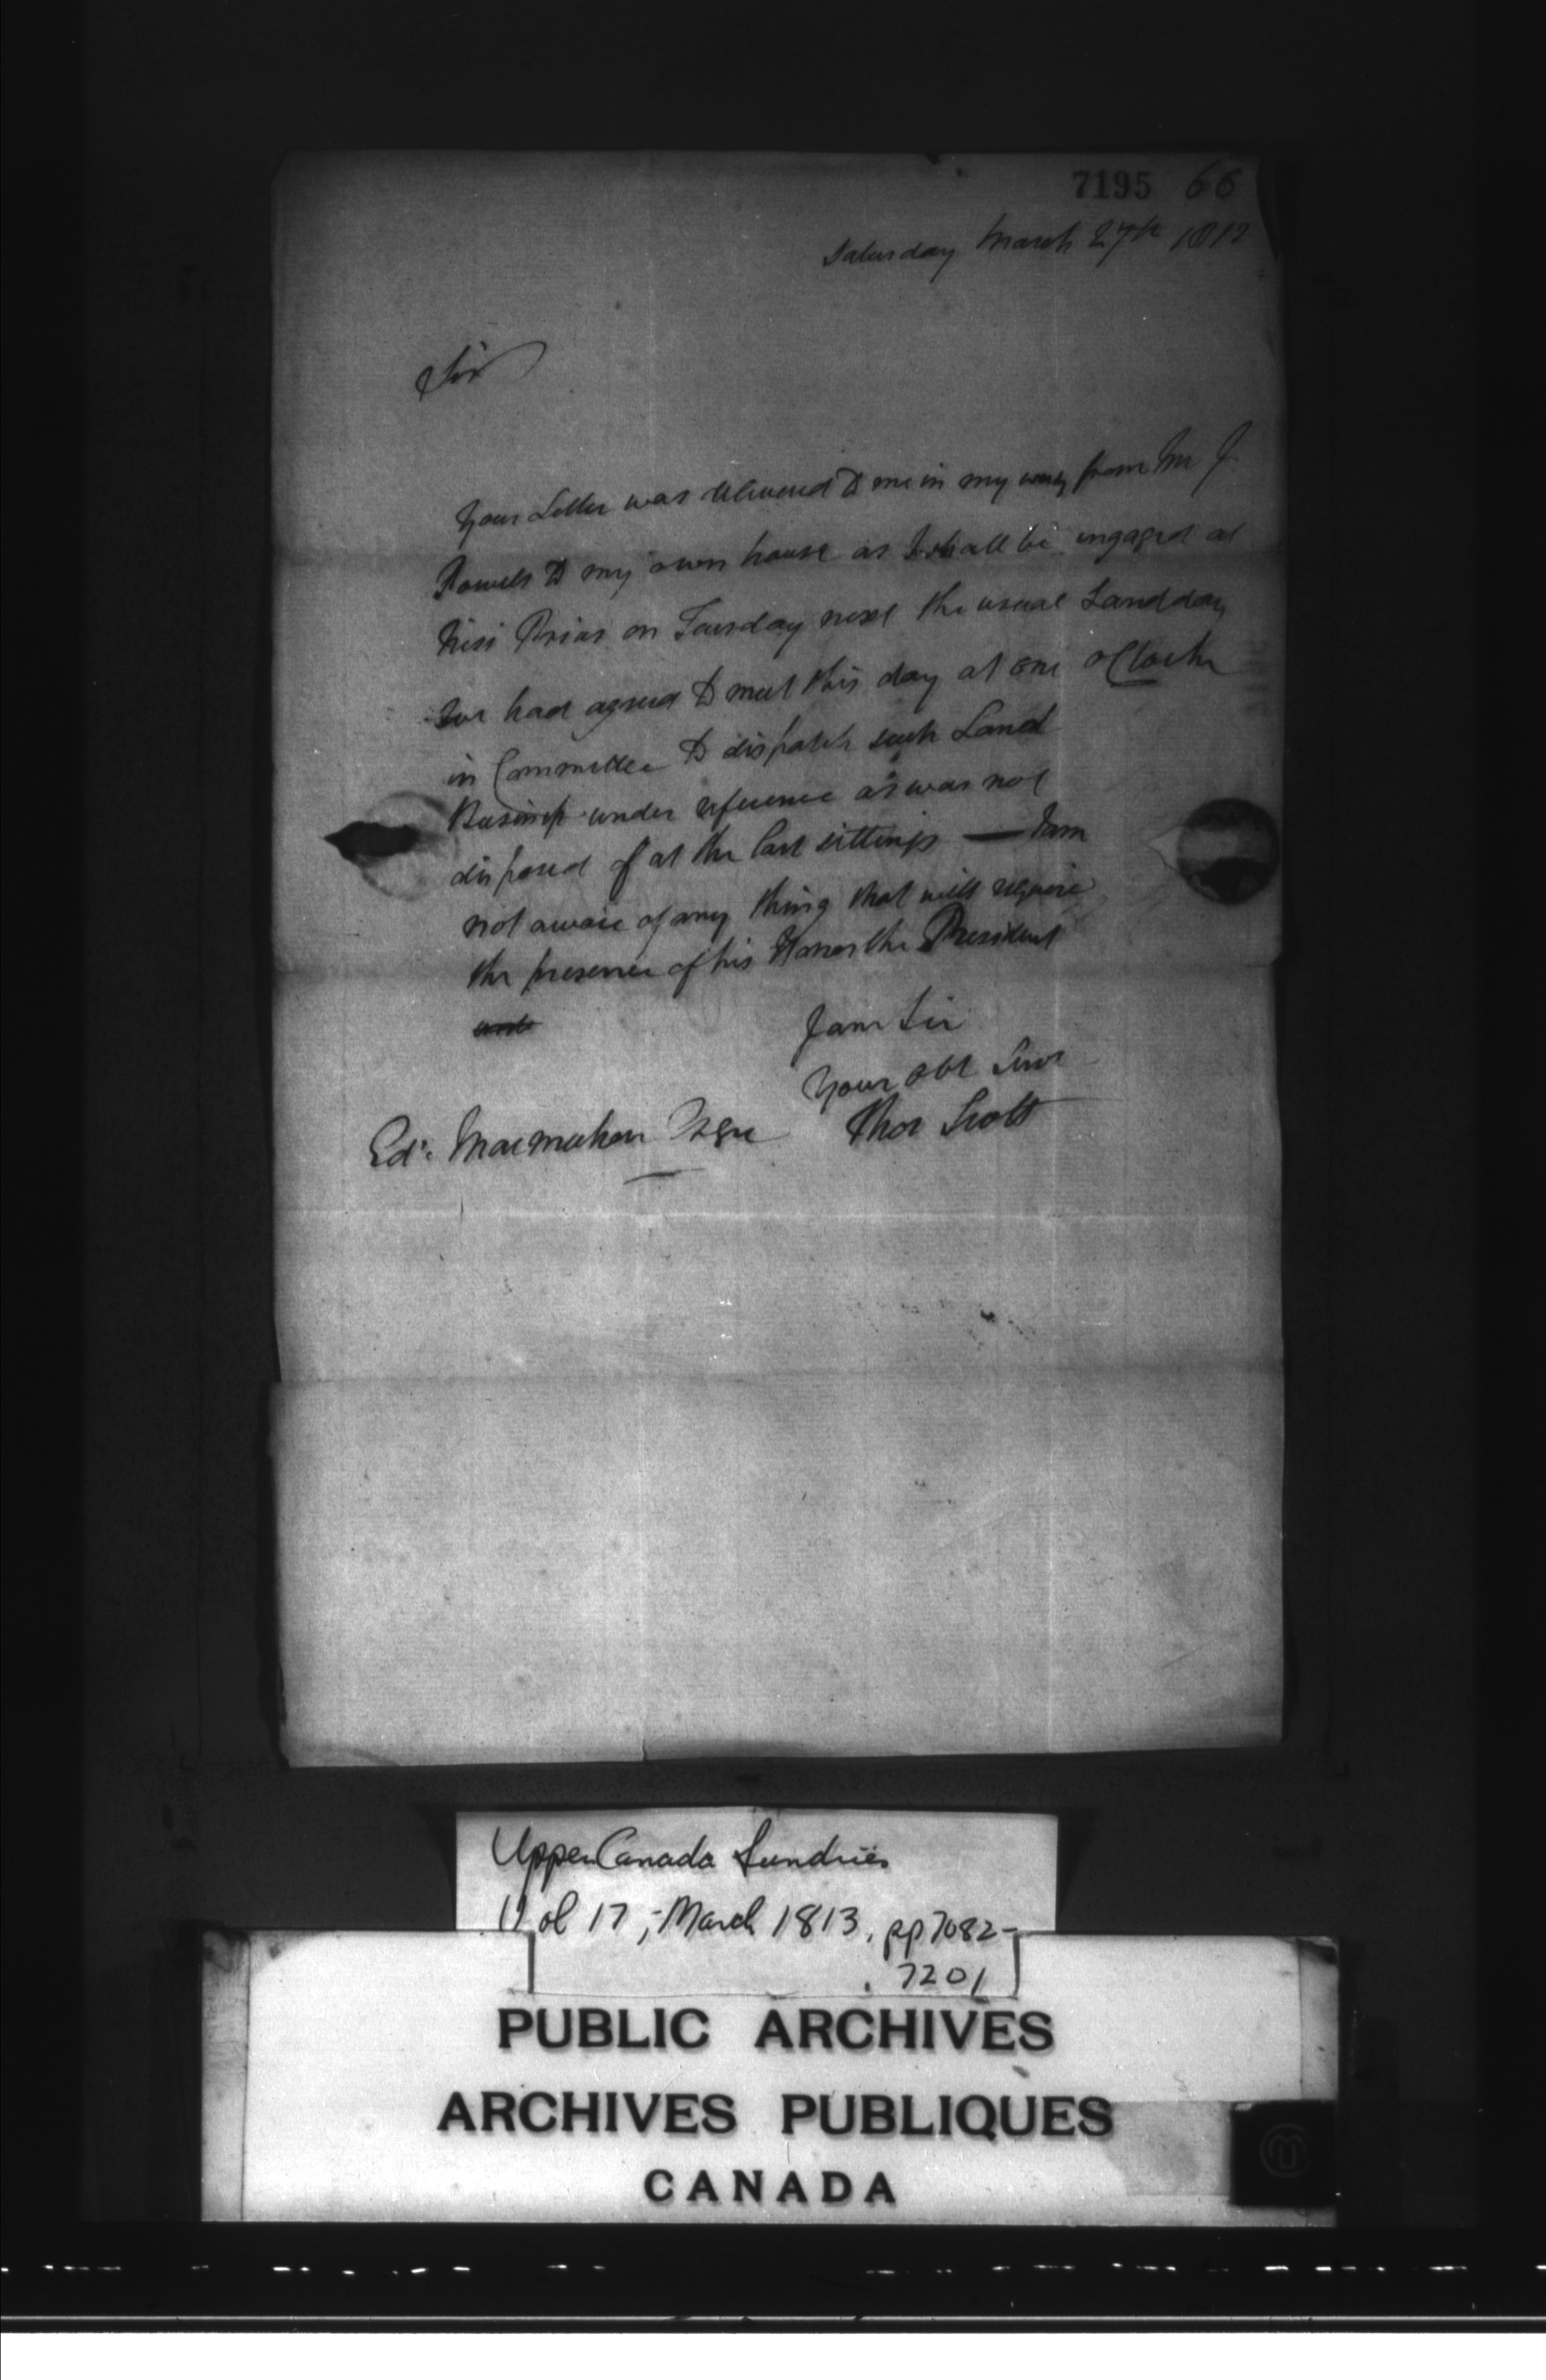 7195 66
Saturday March 27th 1813
Sir
Your Letter was delivered to me in my way from Mr J.
Powels to my own house as I shall be ingaged at
Nisi Prius on Teusday next the usual Land day
we had agreed to meet this day at one oClock
in Committee to dispatch such Land
Business under reference as was not
disposed of at the last sittings — I am
not aware of any thing that will require
the presence of his Honor the President
I am Sir
Your obt Servt
Thos Scott
Edd. Macmahon Esqre
Upper Canada Sundries
Vol 17, March 1813, pp 7082-
7201
PUBLIC ARCHIVES
ARCHIVES PUBLIQUES
CANADA